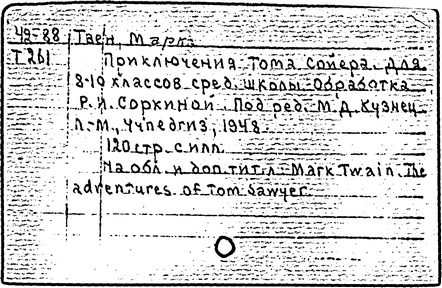 49-88 Твен, Марк
Т 261
Приключения Тома Сойера. Для
8-10 классов сред. школы. Обработка
Р. И. Соркиной. Под ред. М. Д. Кузнец
Л.-М., Учпедгиз, 1948.
120 стр. с илл.
На обл. и доп. тит. л.: Mark Twain. The
adventures of Tom Sawyer.